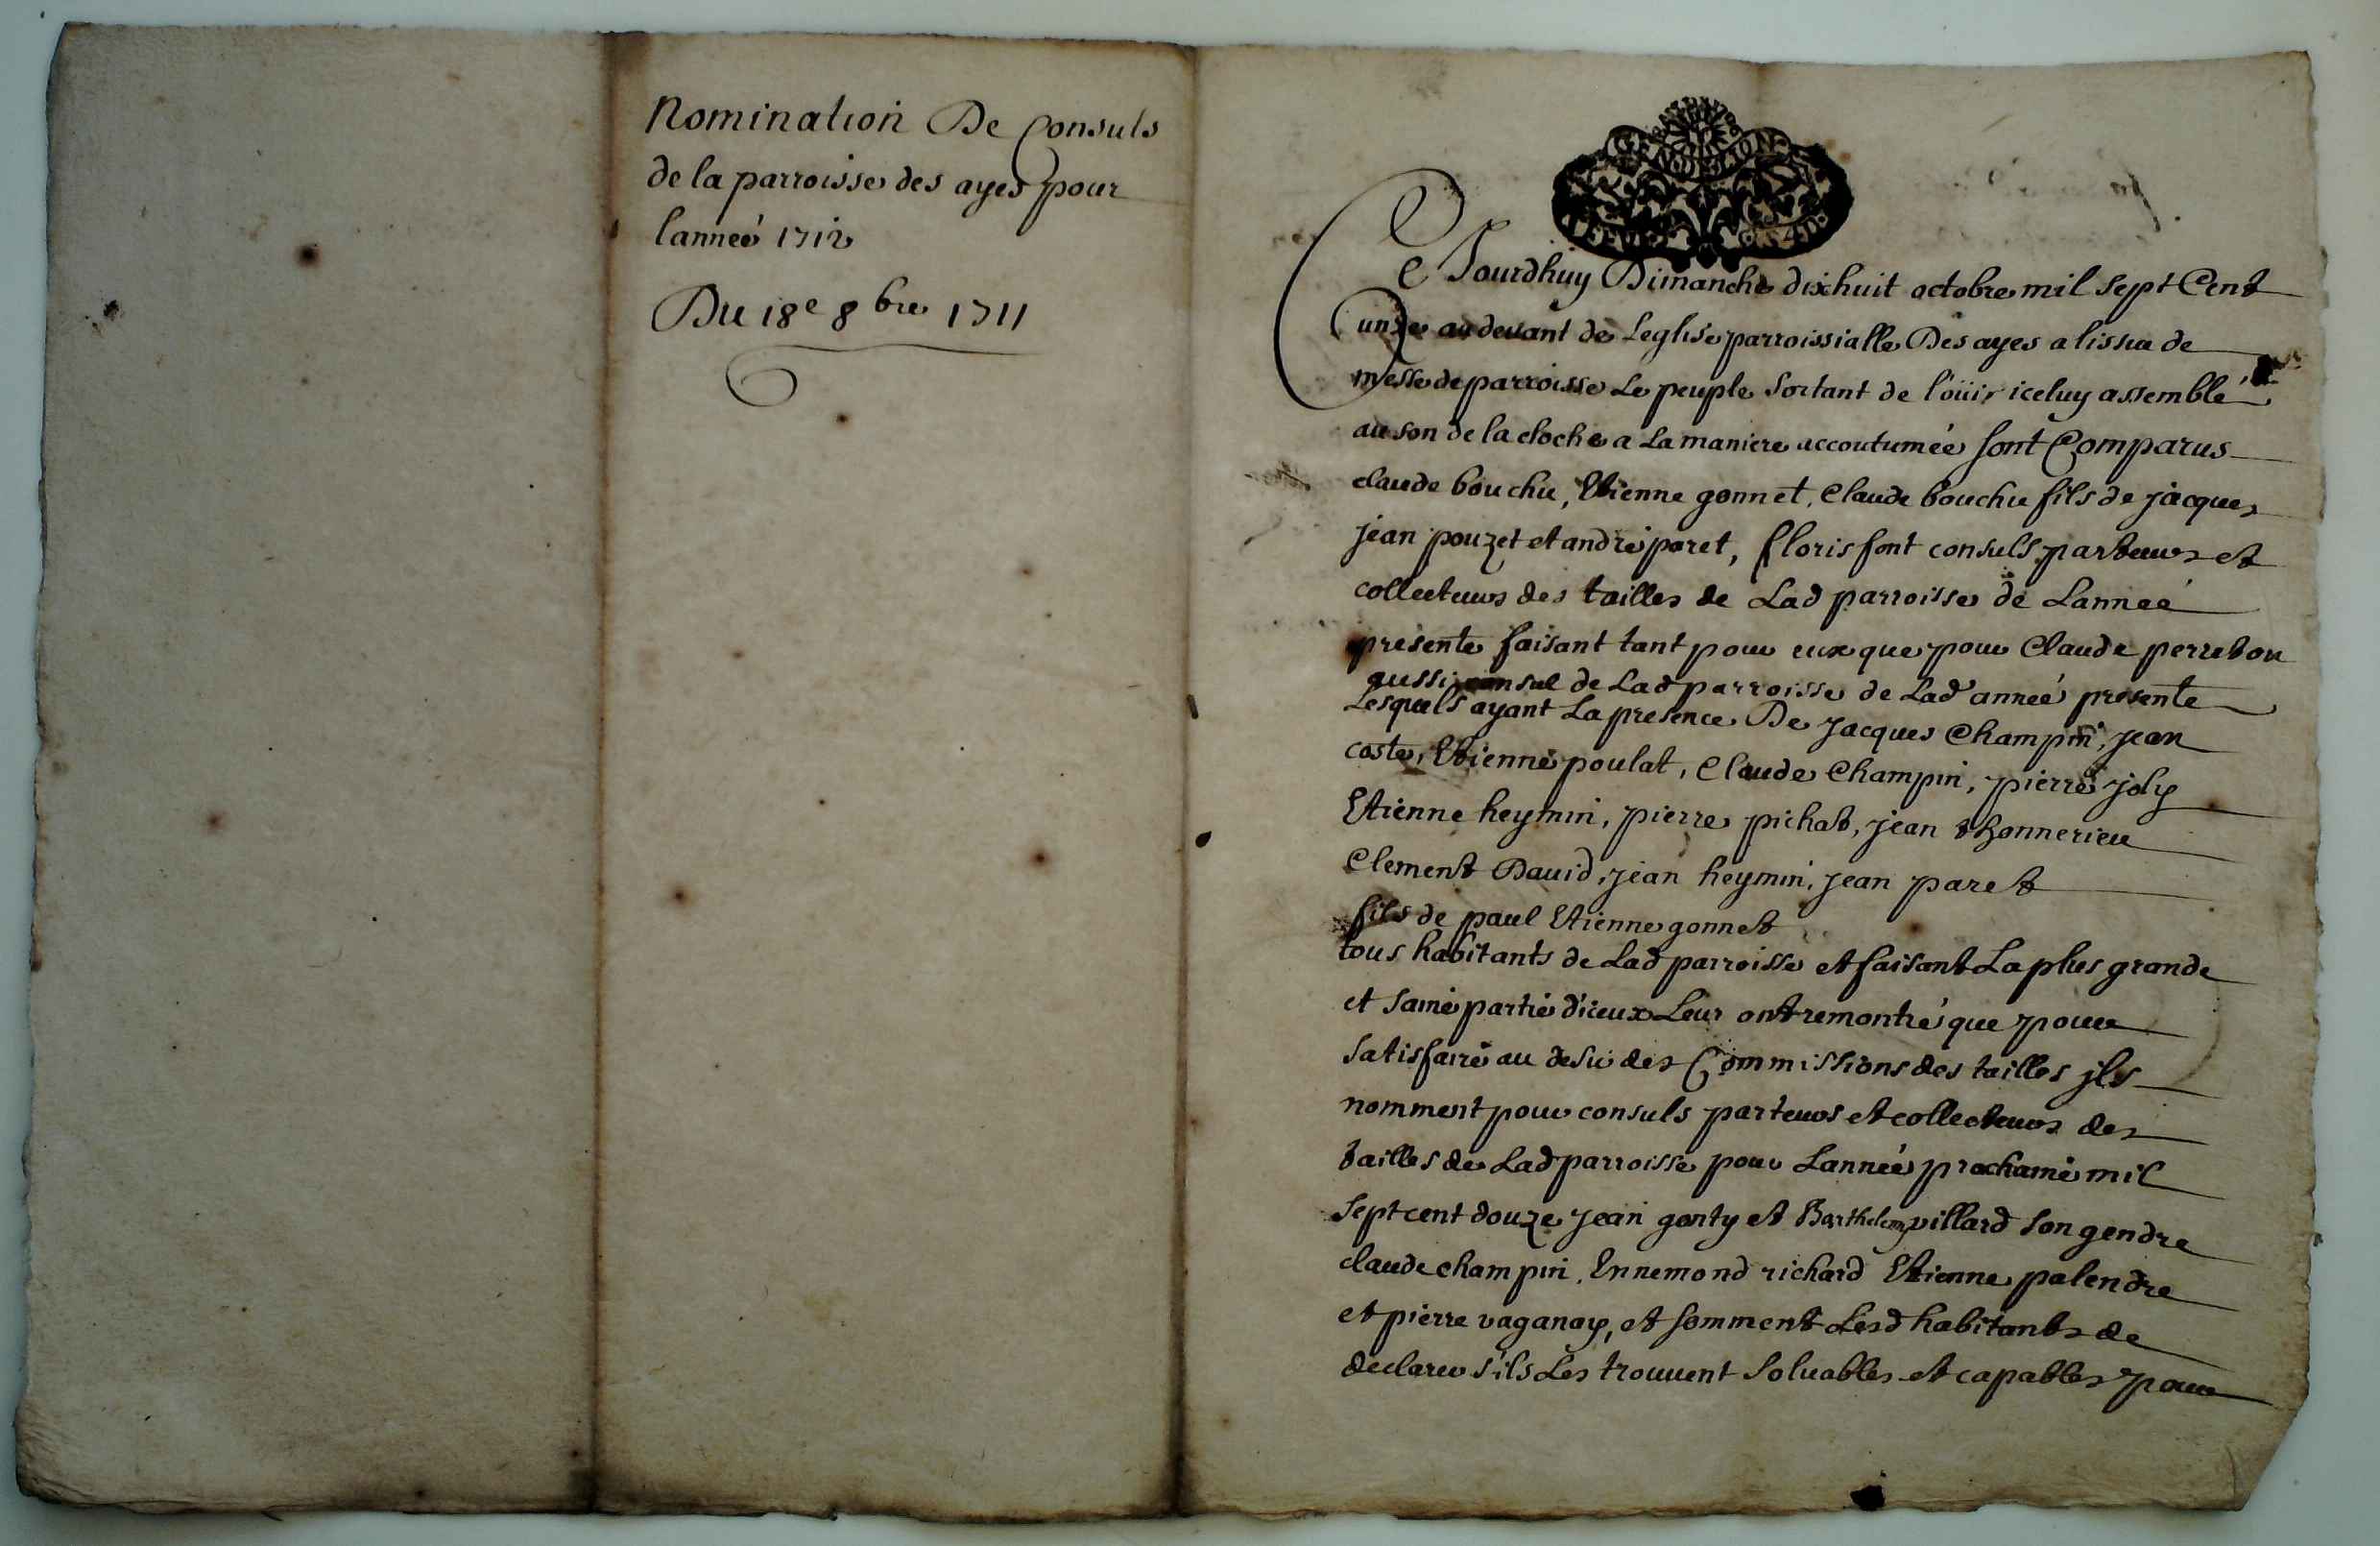 Nomination De Consuls
de la parroisse des ayes pour
lanneé 1712
Du 18e 8bre 1711
GE NERALITE
Ce Jourdhuy Dimanche dixhuit octobre mil Sept Cent
unze au devant de Leglise parroissialle Des ayes a lissue de
messe de parroisse Le peuple Sortant de l'oüir iceluy assemblé
au son de la cloche a La maniere accoutumée sont Comparus
claude bouchu, Etienne gonnet, Claude bouchu fils de jacques
jean pouzet et andré paret, floris font consuls parteurs et
collecteurs des tailles de Lad parroisse de Lanneé
presente faisant tant pour eux que pour Claude perreton
aussi consul de Lad parroisse de Lad anneé presente
Lesquels ayant La presence De Jacques Champin, jean
coste, Etienne poulat, Claude Champin, pierre joly
Etienne heymin, pierre pichat, jean thonnerieu
Clement David, jean heymin, jean paret
fils de paul Etienne gonnet
tous habitants de Lad parroisse et faisant La plus grande
et saine partie d'iceux Leur ont remontré que pour
satisfaire au desir des Commissions des tailles jls
nomment pour consuls parteurs et collecteurs des
tailles de Lad parroisse pour Lannée prochaine mil
Sept cent douze jean gonty et Barthelemy villard son gendre
claude champin, Ennemond richard Etienne palendre
et pierre vaganay, et somment Lesd habitants de
declarer s'ils Les trouvent Soluables et capables pour